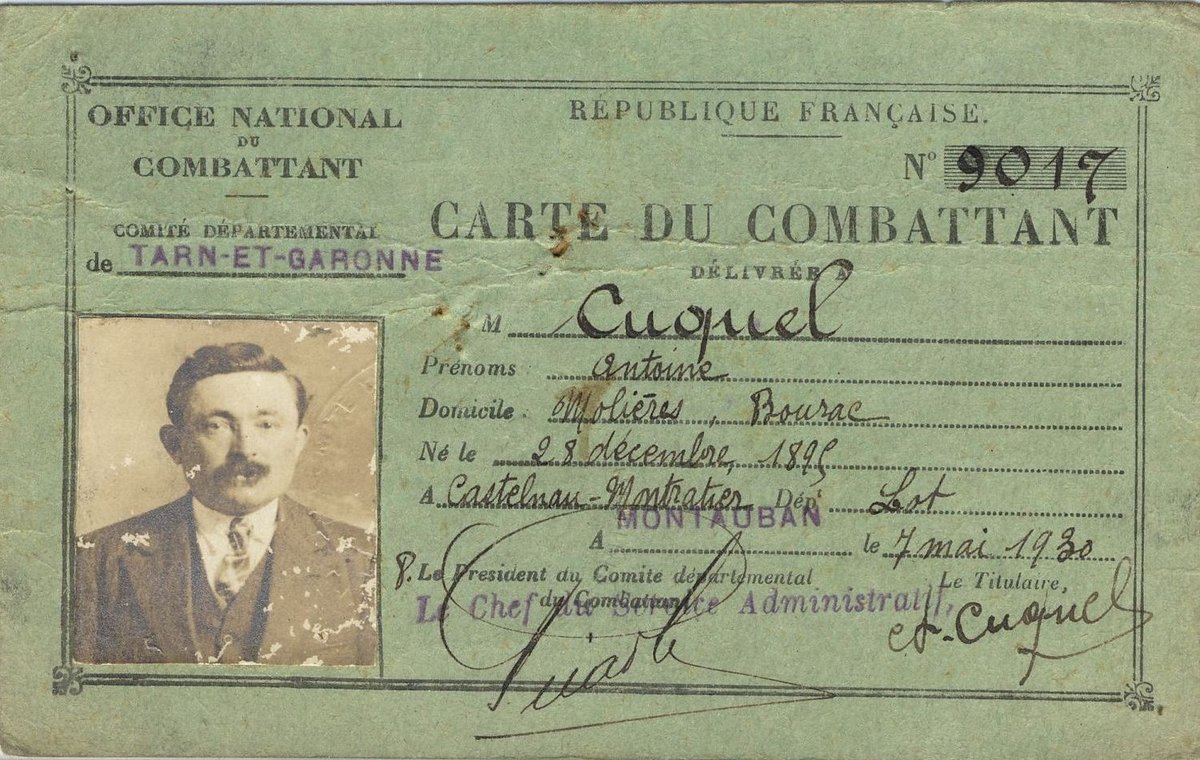 OFFICE NATIONAL
DU
COMBATTANT
COMITÉ DÉPARTEMENTAL
de TARN-ET-GARONNE
RÉPUBLIQUE FRANÇAISE.
N° 9017
CARTE DU COMBATTANT
DÉLIVRÉE A
M Cuquel
Prénoms : Antoine
Domicile : Molières, Bouzac
Né le 28 décembre, 1895
A Castelnau-Montratier Dépt Lot
A MONTAUBAN le 7 mai 1930
P. Le Président du Comité départemental
du Combattant
Le Chef du Service Administratif,
Le Titulaire,
A. Cuquel